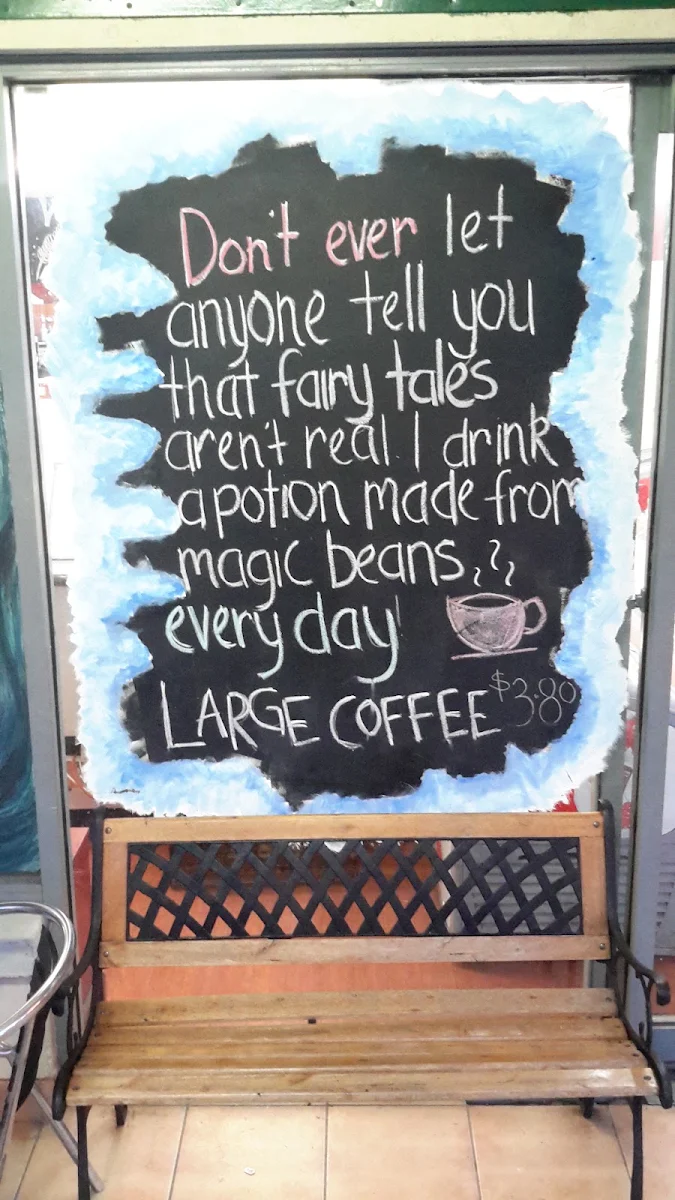 Don't ever let
anyone tell you
that fairy tales
aren't real I drink
a potion made from
magic beans
every day
LARGE COFFEE $3.80